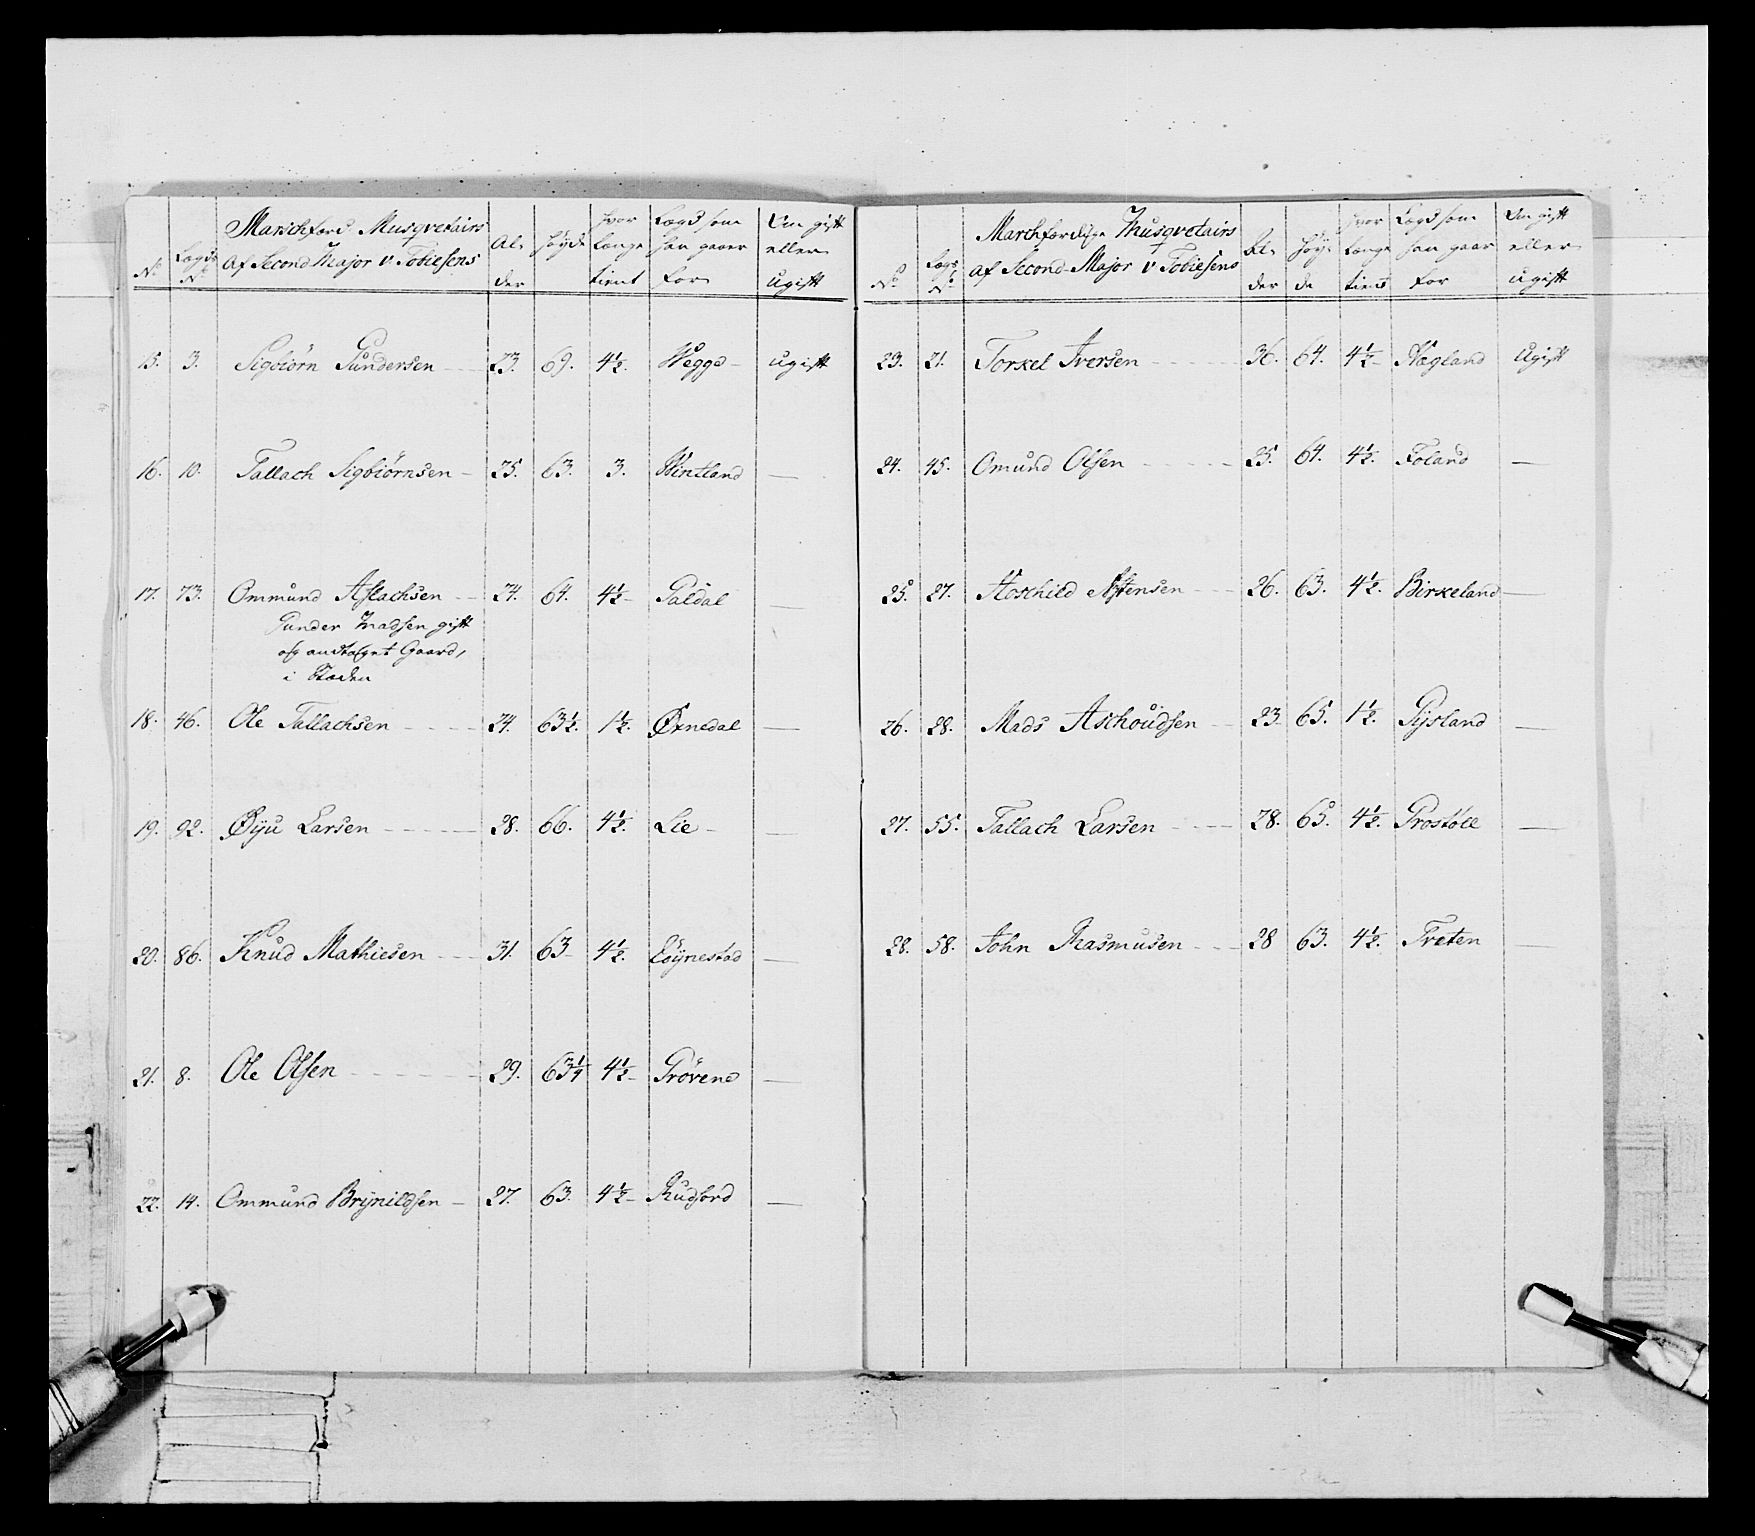 No Lægds No Marschfærd Musqvetairs af Second Major v Tobiesens Alder Høyde hvor længe tient Lægd som han gaaer for Om gift eller ugift
15. 3. Sigbiörn Gundersen 23. 69. 4½. Wegge ugift
16. 10. Tallach Sigbiörnsen 25. 63. 3. Wintland —
17. 73. Ommund Aslachsen 24. 64. 4½ Galdal
Gunder Madsen gift
og andtaget Gaard,
i Stæden
18. 46. Ole Tallachsen 24. 63½. 1½. Øxnedal —
19. 92. Øÿu Larsen 28. 66. 4½. Lie —
20. 86. Knud Mathiesen 31. 63 4½. Eöÿnestad —
21. 8. Ole Olsen 29. 63¼ 4½ Prövend —
22. 14. Ommund Brÿnildsen 27. 63. 4½ Rudsord —
No Lægs No Marchfærdige Musqvetairs af Second Major v Tobiesens Alder Høyde hvor længe tient Lægd som han gaar for Om gift eller ugift
23. 21. Torkel Iversen 36. 64. 4½ Nægland Ugift
24. 45. Omund Olsen 25. 64. 4½. Foland —
25. 27. Hoskild Astensen 26. 63. 4½. Birkeland —
26. 28. Mads Askoudsen 23 65. 1½. Gÿsland —
27. 55. Tallach Larsen 28. 65. 4½. Prostöll —
28. 58. John Rasmusen 28 63. 4½. Treten